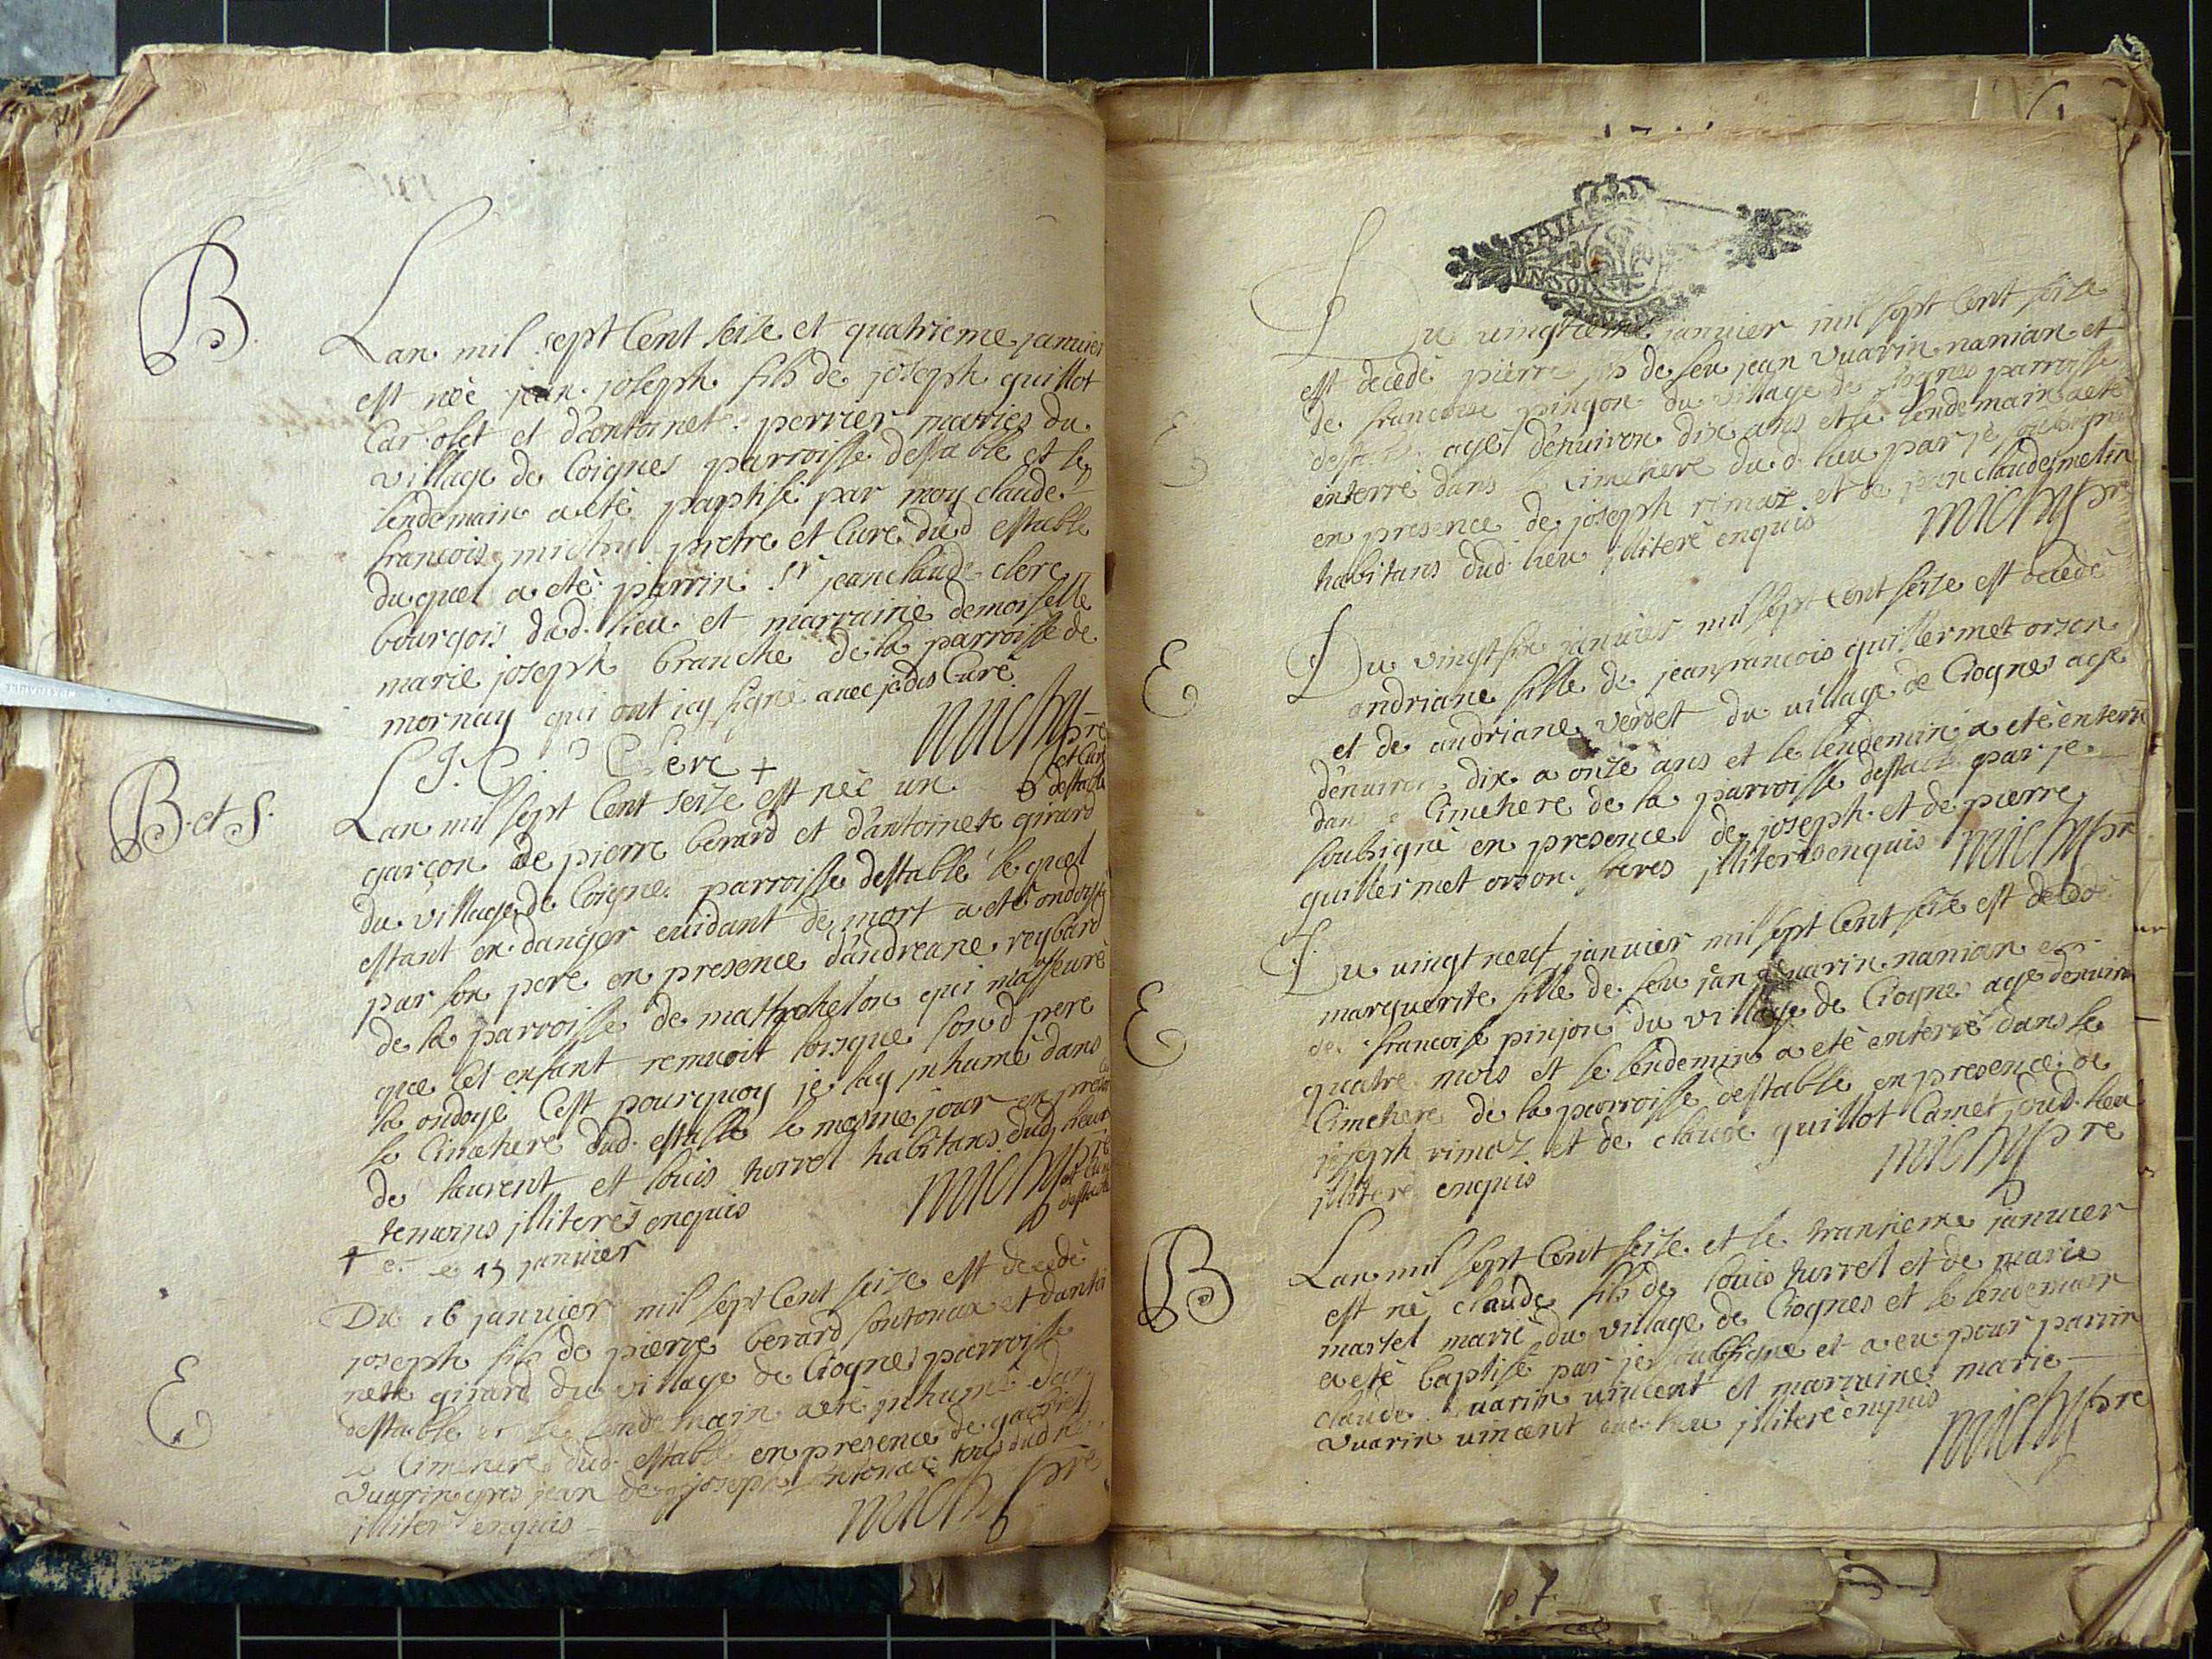 B.
Lan mil sept Cent seise et quatrieme januier
est néé jean joseph fils de joseph guillot
Carolet et dantoinet perrier mariez du
village de Coignes parroisse destable et le
lendemain a eté paptisé par moy claude
francois michy pretre et Curé dud estable
duquel a eté parrin Sr jean claude clerc
bourgois dud. lieu et marraine demoiselle
marie joseph branche de la parroisse de
mornay qui ont icy signé auec je dis Curé
J. C. Clerc + michy pre
et Curé
destable
B. et S.
Lan mil sept Cent seize est néé un
garçon de pierre berard et d'antoinete girard
du village de Coigne parroisse destable le quel
estant en danger euidant de mort a eté ondoyé
par son pere en presence dandreane reybard
de la parroisse de matschelon qui m'asseuré
que Cet enfant remuoit lorsque sond pere
la ondoyé Cest pourquoy je lay inhumé dans
le Cimetiere dud. estable le mesme jour en presence
de laurent et louis turrel habitans dud lieux
temoins illiterés enquis michy pre
et Curé
destable
+ et le 15 januier
Du 16 januier mil sept Cent seize est decedé
E
joseph fils de pierre berard sontonax et dantoi
nette girard du village de Crognes parroisse
destable et le lendemain a eté inhumé dans
le Cimetiere dud. estable en presence de gabriel
Vuarin gros jean de joseph sontonax tous dud lieu
illiteré enquis michy pre
Du uingtieme januier mil sept Cent seize
est decedé pierre fils de feu jean Vuarin nanian et
de francoise pingon du village de Crognes parroisse
destable agé d'enuiron dix ans et le lendemain a eté
enterré dans le Cimetiere du d. lieu par je soubsigné
en presence de joseph rimaz et de jean claude metin
habitans dud. lieu illiteré enquis michy pre
E
Du vingt six januier mil sept Cent seize est decedé
andriane fille de jean francois guillermet orson
et de andriane verset du uillage de Crognes agé
d'enuiron dix a onze ans et le lendemin a eté enterré
dans le Cimetiere de la parroisse destable par je
soubsigné en presence de joseph et de pierre
guillermet orson freres illiterés enquis michy pre
E
Du uingt neuf januier mil sept Cent seize est decedé
marguerite fille de feu jan Vuarin nanian et
de francoise pinjon du village de Crognes agé denuiron
quatre mois et le lendemin a eté enterré dans le
Cimetiere de la parroisse destable en presence de
joseph rimaz et de claude guillot Camet dud. lieu
illiteré enquis michy pre
B
Lan mil sept Cent seize et le trantieme januier
est né claude fils de louis turrel et de marie
martel marié du village de Crognes et le lendemain
a eté baptisé par je soubsigné et a eu pour parrin
claude Vuarin uincent et marraine marie
Vuarin uincent dud. lieu illiteré enquis
michy pre
7